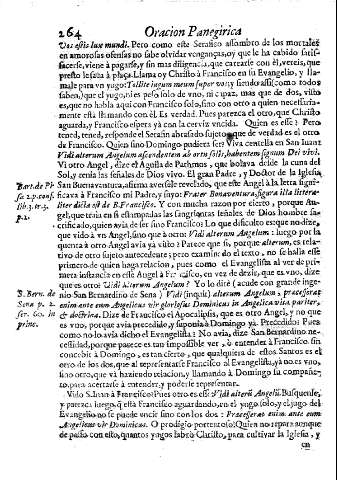 264 Oracion Panegirica
Vos estis lux mundi. Pero como este Serafino assombro de los mortales
en amorosas ofensas no sabe olvidar venganças, oy que le ha cabido satisfacerse,
viene à pagarse, y sin mas diligencia, que carearse con èl, vereis, que
presto le sata à plaça. Llama oy Christo à Francisco en su Evangelio, y llamale
para vn yugo: Tollite iugum meum super vos; y siendo assi (como todos
saben) que el yugo, ni es peso solo de vno, ni vpaz, mas que de dos, visto
es, que no habla aqui con Francisco solo, sino con otro a quien necessariamente
està llamando con èl. Es verdad. Pues parezca el otro, que Christo
aguarda, y Francisco espera yà con la cerviz vncida. Quien es esse? Pero
tened, tened, responde el Serafin abrasado sujeto, que de verdad es el otro
de Francisco. Quien sino Domingo pudiera ser? Viva centella en San Iuan:
Vidi alterum Angelum ascendentem ab ortu solis, habentem signum Dei vivi.
Vi otro Angel, dize el Aguila de Pathmos, que bolava desde la cuna del
Sol, y tenia las señales de Dios vivo. El gran Padre, y Doctor de la Iglesia
Bart. de Pi
sis 2. p. conf.
lib. 3. tr. 3.
p. 2.
San Buenaventura, afirma averselo revelado, que este Angel à la letra significava
à Francisco mi Padre, y suyo: Frater Bonaventura, figura illa litteraliter
dicta est de B. Francisco. Y con mucha razon por cierto, porque Angel,
que tenia en si estampadas las sangrientas señales de Dios hombre sacrificado,
quien avia de ser sino Francisco? Lo que dificulto es que no dize,
que vido à vn Angel, sino que à otro: Vidi alterum Angelum: luego por la
quenta à otro Angel avia yà visto? Parece que si, porque alterum, es relativo
de otro sujeto antecedente; pero examinado el texto, no se halla esse
primero de quien haga relacion, pues como el Evangelista al ver de primera
instancia en este Angel à Francisco, en vez de dezir, que es vno, dize
que es otro: Vidi alterum Angelum? Yo lo dirè (acude con grande ingenio
San Bernardino de Sena) Vidi (inquit) alterum Angelum, praecesserat
S. Bern. de
Sena p. 2.
ser. 60. in
princ.
enim ante eum Angelicus vir gloriosus Dominicus in Angelica vita pariter,
& doctrina. Dize de Francisco el Apocalipsis, que es otro Angel, y no que
es vno, porque avia precedido, y suponia à Domingo yà. Precedido? Pues
como no lo avia dicho el Evangelista? No avia, dize San Bernardino necessidad,
porque parece es tan impossible ver, ò entender à Francisco sin
concebir à Domingo, es tan cierto, que qualquiera de estos Santos es el
otro de los dos, que al representarse Francisco al Evangelista, yà no es vno,
sino otro, que và haziendo relacion, y llamando à Domingo su compañero,
para acertarse à entender, y poderse representar.
Vido S. Iuan à Francisco? Pues otro es esse: Vidi alterum Angelum. Busquesele,
y parezca luego, q̃ està Francisco aguardando, en el yugo solo, y el yugo del
Evangelio no se puede vncir sino con los dos: Praecesserat enim ante eum
Angelicus vir Dominicus. O prodigio portentoso! Quien no repara aunque
de passo con esto, quantos yugos labrò Christo, para cultivar la Iglesia, y
en